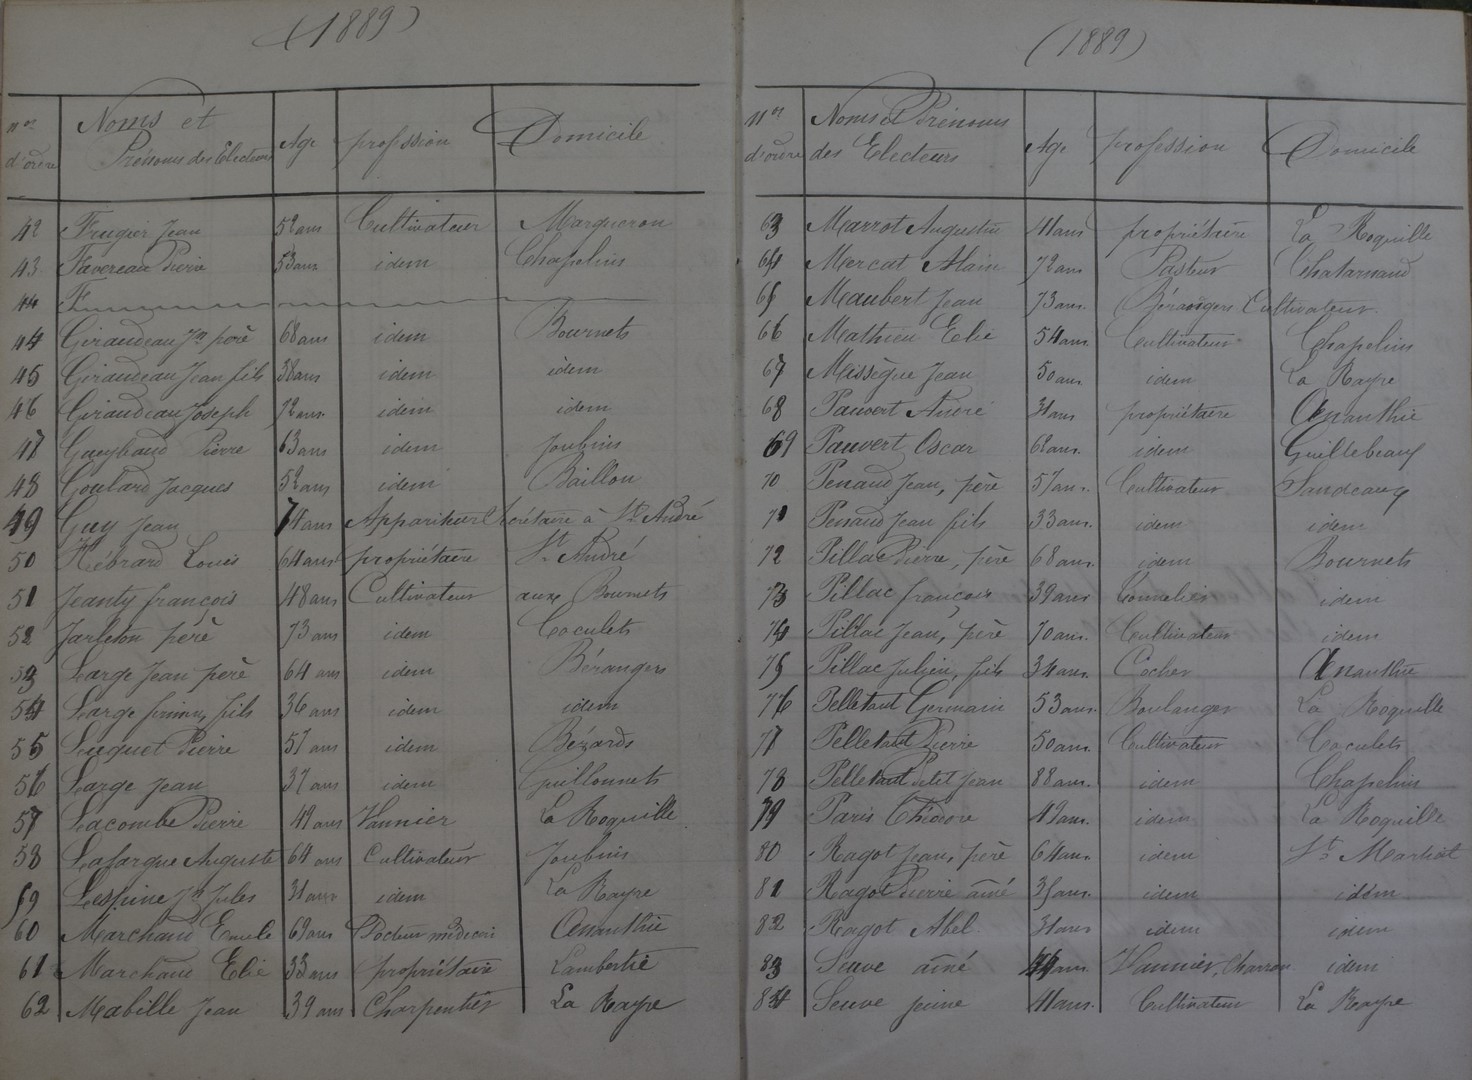 (1889)
Nos d'ordre Noms et Prénoms des Electeurs Age profession Domicile
42 Frugier Jean 52 ans Cultivateur Margueron
43 Favereau Pierre 53 ans idem Chapelins
44 F
44 Giraudeau Jn père 68 ans idem Bournets
45 Giraudeau Jean fils 38 ans idem idem
46 Giraudeau Joseph 72 ans idem idem
47 Pierre 63 ans idem Joubins
48 Goulard Jacques 52 ans idem Baillou
49 Guy Jean 74 ans Appariteur à St André
50 Hébrard Louis 64 ans propriétaire St André
51 Jeanty françois 48 ans Cultivateur aux Bournets
52 Jarleton père 73 ans idem Coculets
53 Large Jean père 64 ans idem Bérangers
54 Large fils 36 ans idem idem
55 Luquet Pierre 57 ans idem Bézards
56 Large Jean 37 ans idem Guillonnets
57 Lacombe Pierre 49 ans Vannier La Roquille
58 Lafargue Auguste 64 ans Cultivateur Joubins
59 Lespine Jn Jules 31 ans idem La Rayre
60 Marchand Emile 69 ans Docteur médecin Œnanthie
61 Marchand Elie 33 ans propriétaire Lambertie
62 Mabille Jean 39 ans Charpentier La Rayre
(1889)
Nos d'ordre Noms & Prénoms des Electeurs Age profession Domicile
63 Marrot Augustin 41 ans propriétaire La Roquille
64 Mercat Alain 72 ans Pasteur Chatarnaud
65 Maubert Jean 73 ans Bérangers Cultivateur
66 Mathieu Elie 54 ans Cultivateur Chapelins
67 Missègue Jean 50 ans idem La Rayre
68 Pauvert André 31 ans propriétaire Œnanthie
69 Pauvert Oscar 62 ans idem Guillebeauf
70 Penaud Jean, père 57 ans Cultivateur Sandeaux
71 Penaud Jean fils 33 ans idem idem
72 Pillac Pierre, père 68 ans idem Bournets
73 Pillac françois 39 ans Tonnelier idem
74 Pillac Jean, père 70 ans Cultivateur idem
75 Pillac Julien, fils 34 ans Cocher Œnanthie
76 Pelletant Germain 53 ans Boulanger La Roquille
77 Pelletant Pierre 50 ans Cultivateur Coculets
78 Pelletant Petit Jean 88 ans idem Chapelins
79 Paris Théodore 49 ans idem La Roquille
80 Ragot Jean, père 64 ans idem St Martial
81 Ragot Pierre ainé 35 ans idem idem
82 Ragot Abel 31 ans idem idem
83 Seuve ainé 44 ans Vannier, Charron idem
84 Seuve jeune 41 ans Cultivateur La Rayre